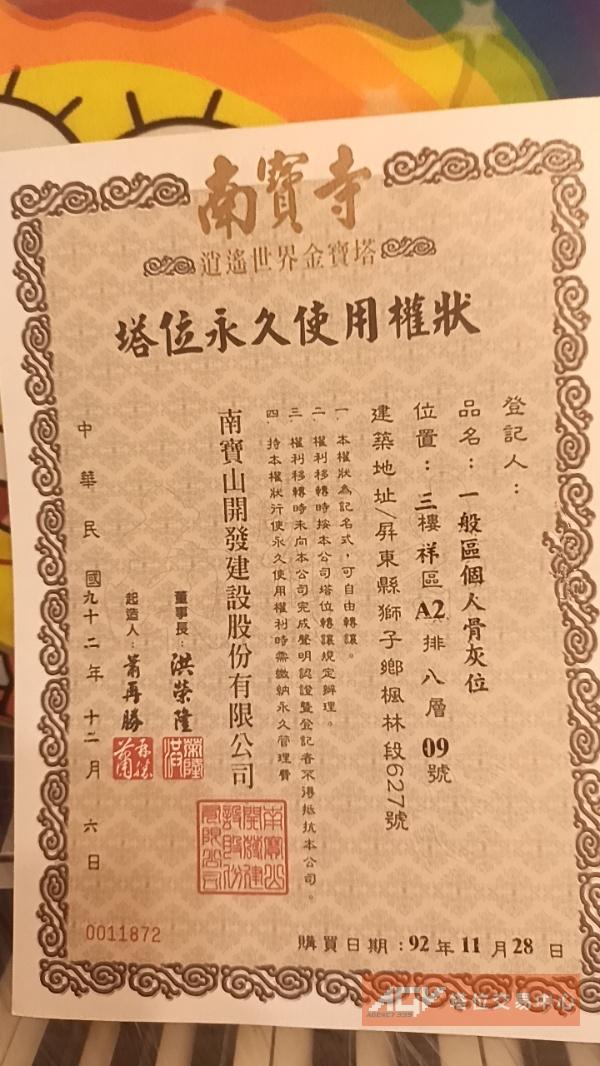 南寶寺
逍遙世界金寶塔
塔位永久使用權狀
登記人：
品名：一般區個人骨灰位
位置：三樓祥區A2排八層09號
建築地址/屏東縣獅子鄉楓林段627號
一、本權狀為記名式，可自由轉讓。
二、權利移轉時按本公司塔位轉讓規定辦理。
三、權利移轉時未向本公司完成聲明認證暨登記者不得抵抗本公司。
四、持本權狀行使永久使用權利時需繳納永久管理費
南寶山開發建設股份有限公司
董事長：洪榮隆
起造人：蕭再勝
中華民國九十二年十二月六日
南寶山開發建設股份有限公司
0011872
購買日期：92年11月28日
ACY 塔位交易中心
AGENCY 995